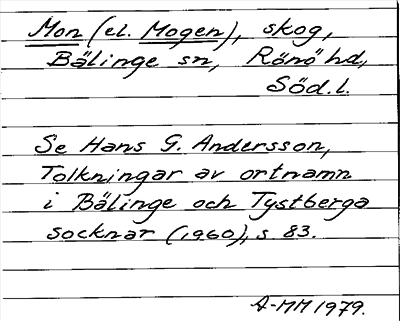 Mon (el. Mogen), skog,
Bälinge sn, Rönö hd,
Söd.l.
Se Hans G. Andersson,
Tolkningar av ortnamn
i Bälinge och Tystberga
socknar (1960), s. 83.
A-MM 1979.